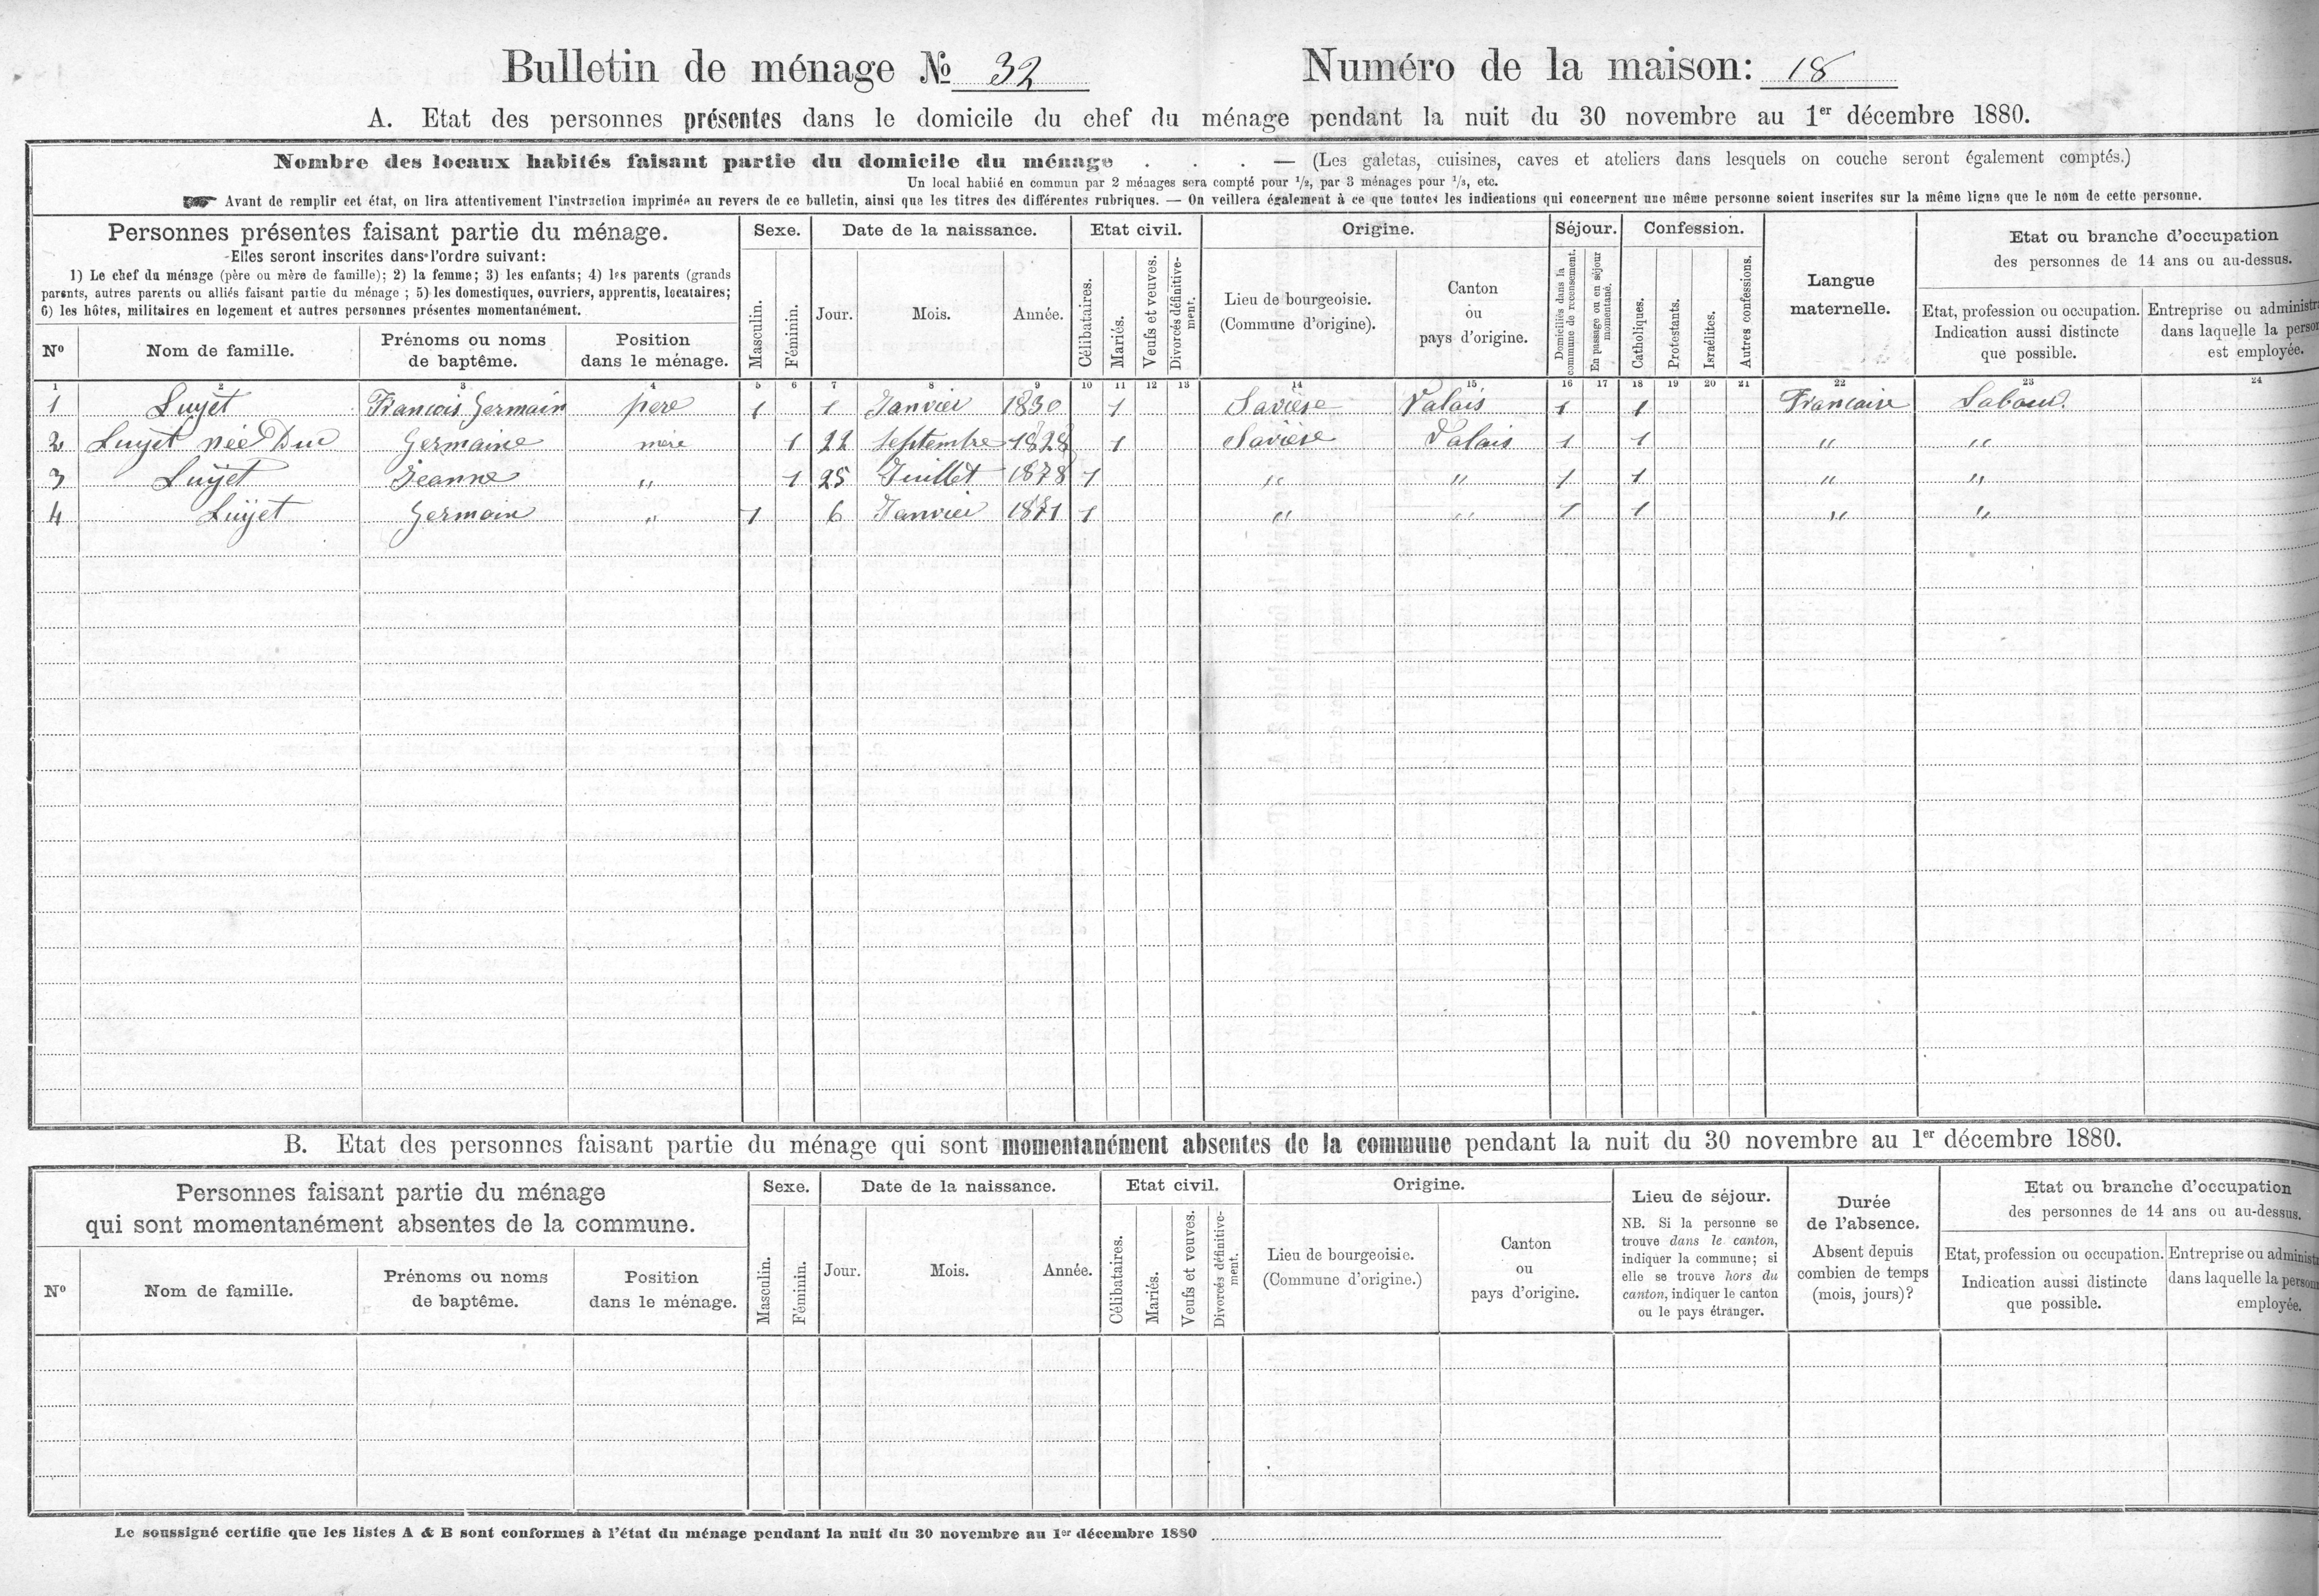 Bulletin de ménage № 32 Numéro de la maison: 18
A. Etat des personnes présentes dans le domicile du chef du ménage pendant la nuit du 30 novembre au 1er décembre 1880.
Nombre des locaux habités faisant partie du domicile du ménage . . . — (Les galetas, cuisines, caves et ateliers dans lesquels on couche seront également comptés.)
Un local habité en commun par 2 ménages sera compté pour 1/2, par 3 ménages pour 1/3, etc.
Avant de remplir cet état, on lira attentivement l'instruction imprimée au revers de ce bulletin, ainsi que les titres des différentes rubriques. — On veillera également à ce que toutes les indications qui concernent une même personne soient inscrites sur la même ligne que le nom de cette personne.
Personnes présentes faisant partie du ménage.
Elles seront inscrites dans l'ordre suivant:
1) Le chef du ménage (père ou mère de famille); 2) la femme; 3) les enfants; 4) les parents (grands
parents, autres parents ou alliés faisant partie du ménage ; 5) les domestiques, ouvriers, apprentis, locataires;
6) les hôtes, militaires en logement et autres personnes présentes momentanément.
Nº
Nom de famille.
Prénoms ou noms
de baptême.
Position
dans le ménage.
Sexe.
Masculin.
Féminin.
Date de la naissance.
Jour.
Mois.
Année.
Etat civil.
Célibataires.
Mariés.
Veufs et veuves.
Divorcés définitive-
ment.
Origine.
Lieu de bourgeoisie.
(Commune d'origine).
Canton
ou
pays d'origine.
Séjour.
Domiciliés dans la
commune de recensement.
En passage ou en séjour
momentané.
Confession.
Catholiques.
Protestants.
Israélites.
Autres confessions.
Langue
maternelle.
Etat ou branche d'occupation
des personnes de 14 ans ou au-dessus.
Etat, profession ou occupation.
Indication aussi distincte
que possible.
Entreprise ou administr
dans laquelle la person
est employée.
1 2 3 4 5 6 7 8 9 10 11 12 13 14 15 16 17 18 19 20 21 22 23 24
1 Luyet François Germain père 1 1 Janvier 1830 1 Savièse Valais 1 1 Française Labour.
2 Luyet née Duc Germaine mère 1 22 Septembre 1828 1 Savièse Valais 1 1 " "
3 Luyet Jeanne " 1 25 Juillet 1878 1 " " 1 1 " "
4 Luyet Germain " 1 6 Janvier 1871 1 " " 1 1 " "
B. Etat des personnes faisant partie du ménage qui sont momentanément absentes de la commune pendant la nuit du 30 novembre au 1er décembre 1880.
Personnes faisant partie du ménage
qui sont momentanément absentes de la commune.
Nº
Nom de famille.
Prénoms ou noms
de baptême.
Position
dans le ménage.
Sexe.
Masculin.
Féminin.
Date de la naissance.
Jour.
Mois.
Année.
Etat civil.
Célibataires.
Mariés.
Veufs et veuves.
Divorcés définitive-
ment.
Origine.
Lieu de bourgeoisie.
(Commune d'origine.)
Canton
ou
pays d'origine.
Lieu de séjour.
NB. Si la personne se
trouve dans le canton,
indiquer la commune; si
elle se trouve hors du
canton, indiquer le canton
ou le pays étranger.
Durée
de l'absence.
Absent depuis
combien de temps
(mois, jours)?
Etat ou branche d'occupation
des personnes de 14 ans ou au-dessus.
Etat, profession ou occupation.
Indication aussi distincte
que possible.
Entreprise ou administ
dans laquelle la person
employée.
Le soussigné certifie que les listes A & B sont conformes à l'état du ménage pendant la nuit du 30 novembre au 1er décembre 1880